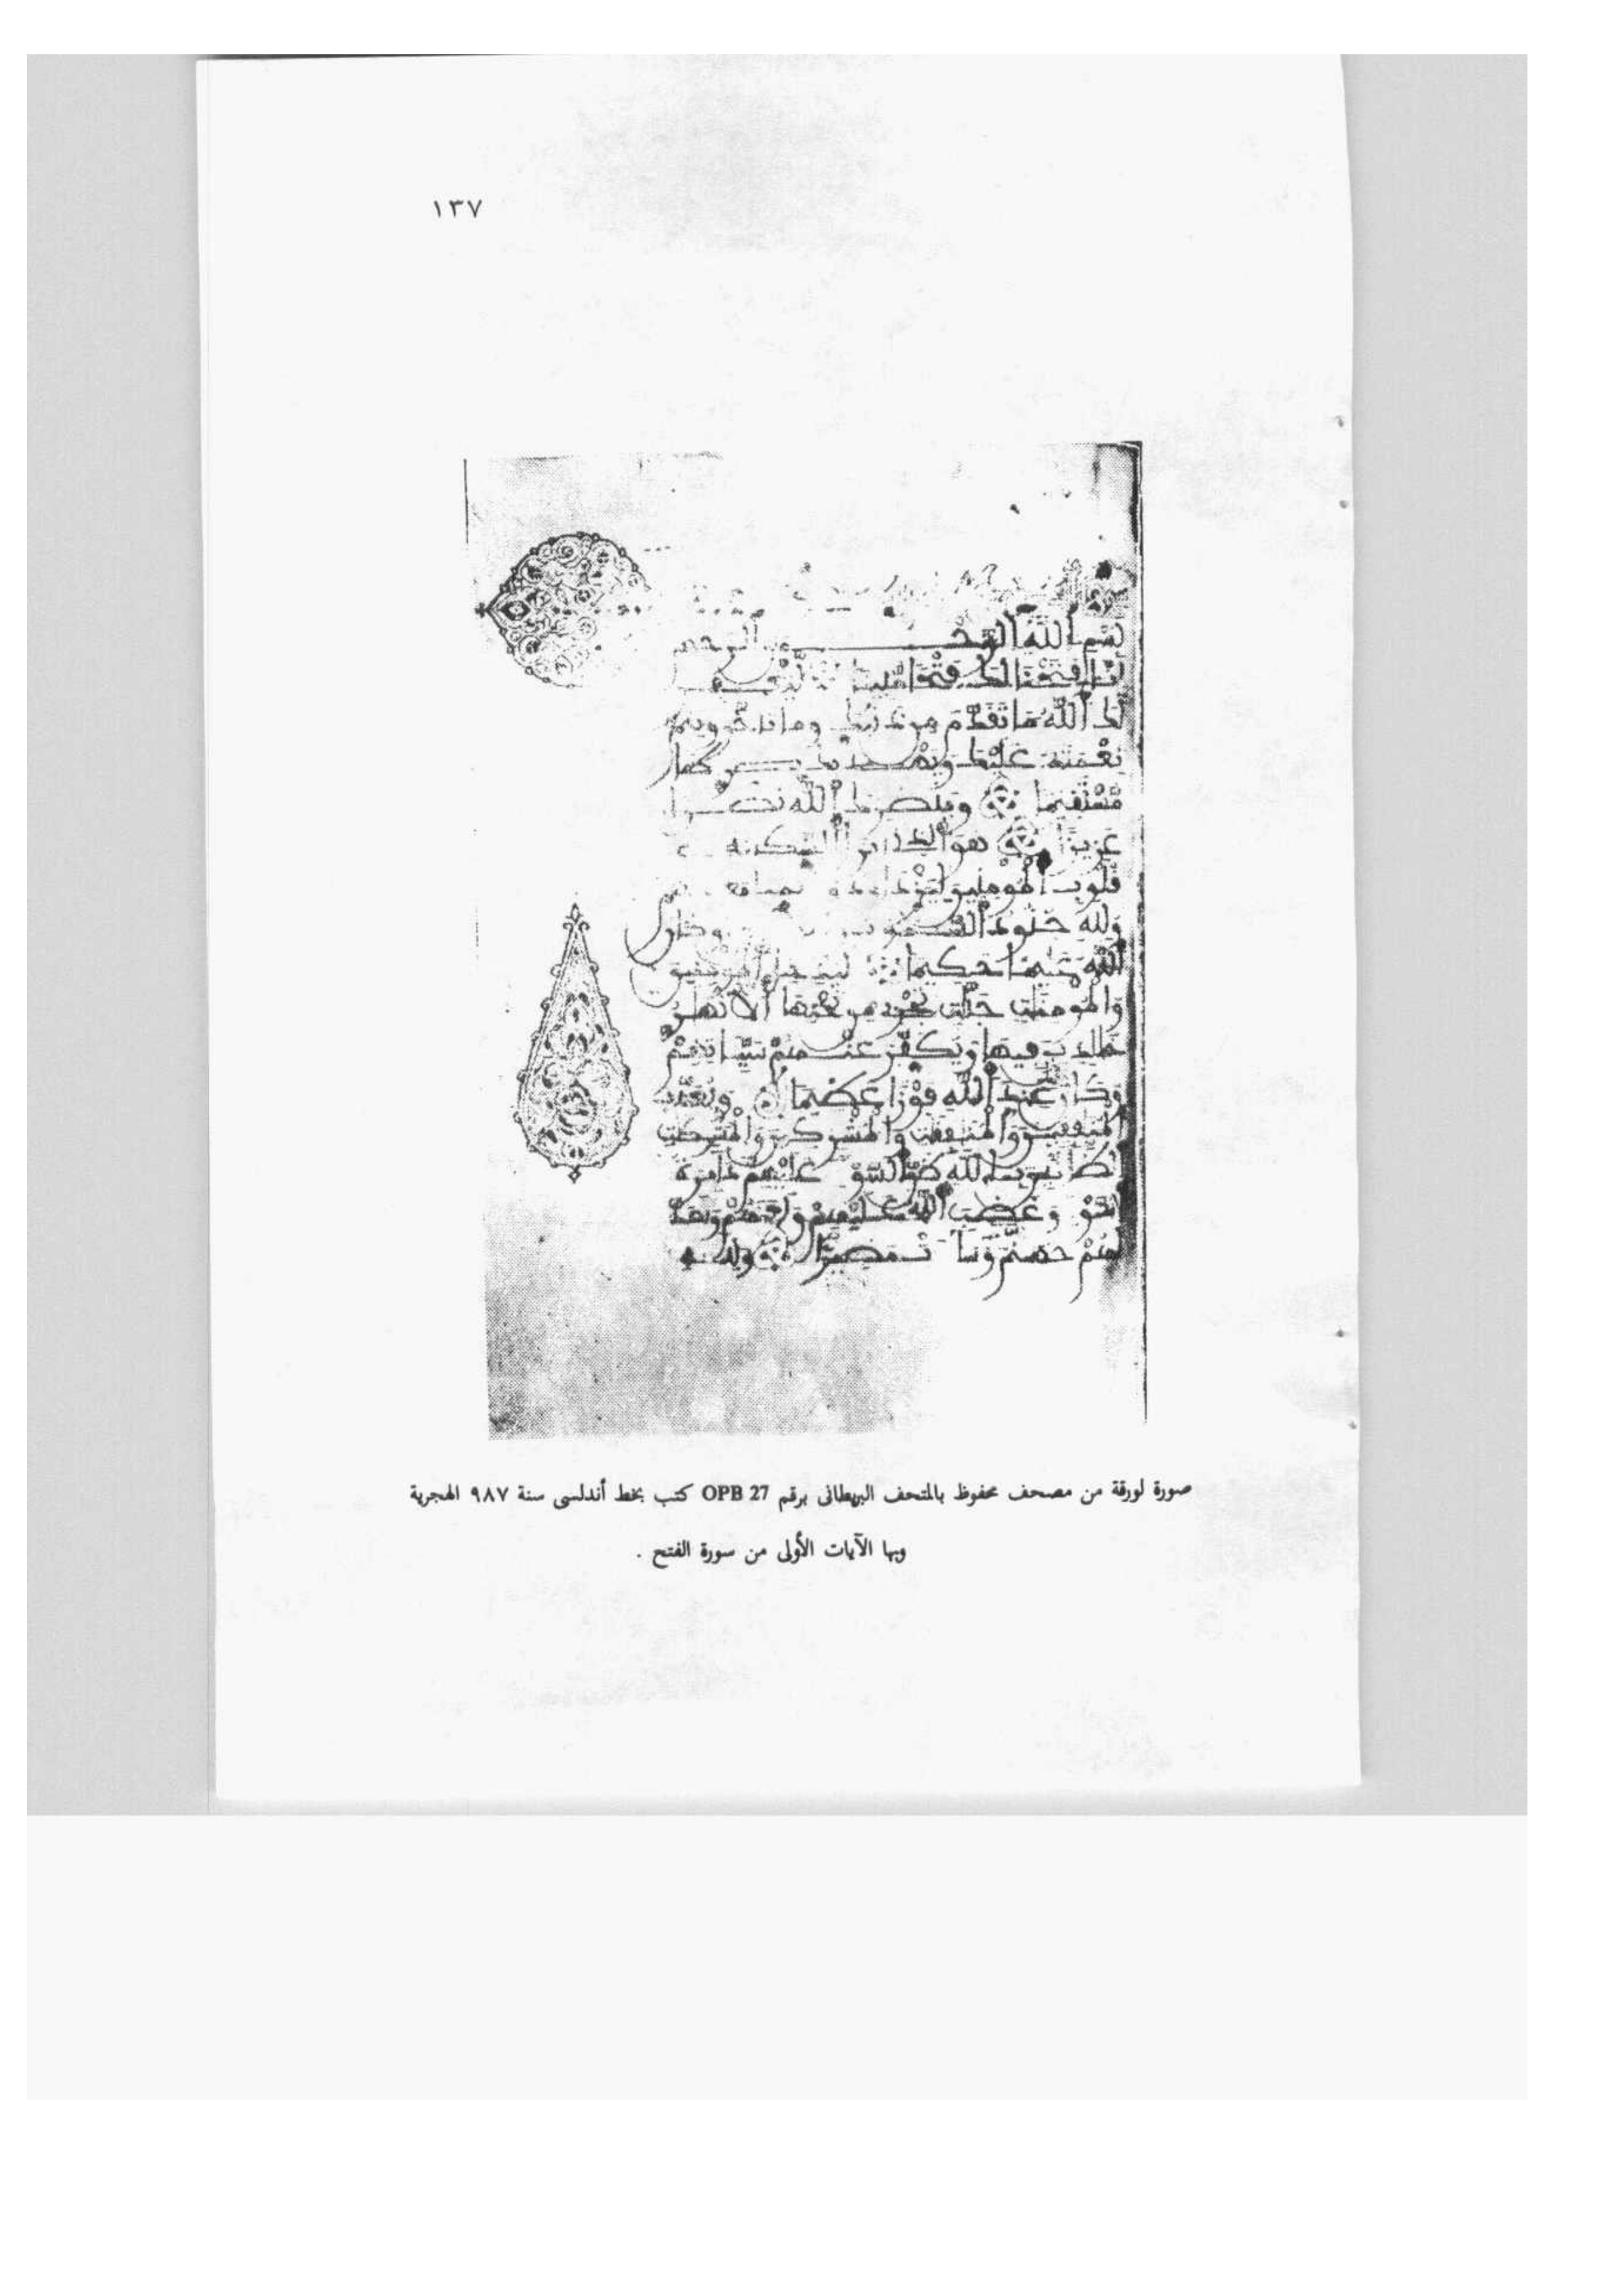 ١٣٧
بسم الله الرحمن الرحيم
إنا فتحنا لك فتحا مبينا ليغفر
لك الله ما تقدم من ذنبك وما تأخر ويتم
نعمته عليك ويهديك صراطا
مستقيما وينصرك الله نصرا
عزيزا هو الذي أنزل السكينة في
قلوب المومنين ليزدادوا
ولله جنود السموت وكان
الله عليما حكيما ليدخل المومنين
والمومنت جنت تجري من تحتها الانهر
خلدين فيها ويكفر عنهم سيئاتهم
وكان عند الله فوزا عظيما ويعذب
المنفقين والمنفقت والمشركين والمشركت
بالله ظن السوء عليهم دائرة
السوء وغضب الله عليهم ولعنهم وأعد
لهم جهنم وساءت مصيرا ولله
صورة لورقة من مصحف محفوظ بالمتحف البريطانى برقم OPB 27 كتب بخط أندلسى سنة ٩٨٧ الهجرية
وبها الآيات الأولى من سورة الفتح .